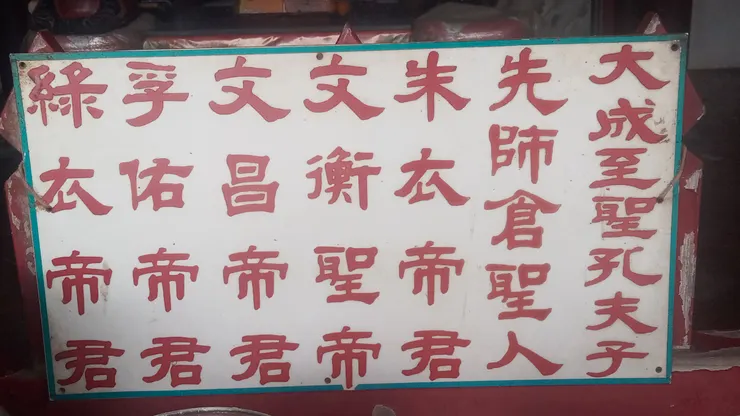 大成至聖孔夫子
先師倉聖人
朱衣帝君
文衡聖帝
文昌帝君
孚佑帝君
綠衣帝君